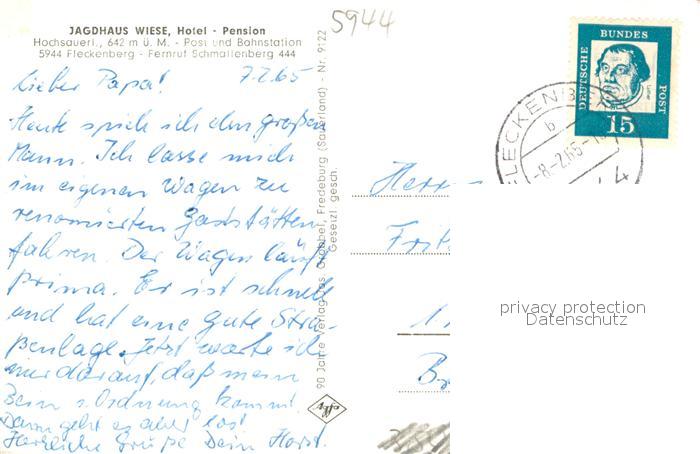 JAGDHAUS WIESE, Hotel - Pension
Hochsauerl., 642 m ü. M. - Post und Bahnstation
5944 Fleckenberg - Fernruf Schmallenberg 444
5944
Lieber Papa! 7.2.65
Heute spiele ich den großen
Mann. Ich lasse mich
im eigenen Wagen zu
renomierten Gaststätten
fahren. Der Wagen läuft
prima. Er ist schnell
und hat eine gute Stra-
ßenlage. Jetzt warte ich
nur darauf, daß mein
Bein i. Ordnung kommt.
Dann geht es aber los!
Herzliche Grüße Dein Horst.
90 Jahre Verlag Jos. Grobbel, Fredeburg (Sauerland) - Nr. 9122
Gesetzl gesch.
Herr
Fritz
DEUTSCHE BUNDES POST
15
FLECKENBERG
b
-8.-2.65-1
privacy protection
Datenschutz